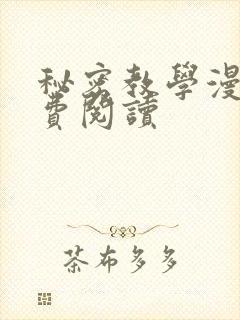 秘密教學漫
費閱讀
茶布多多